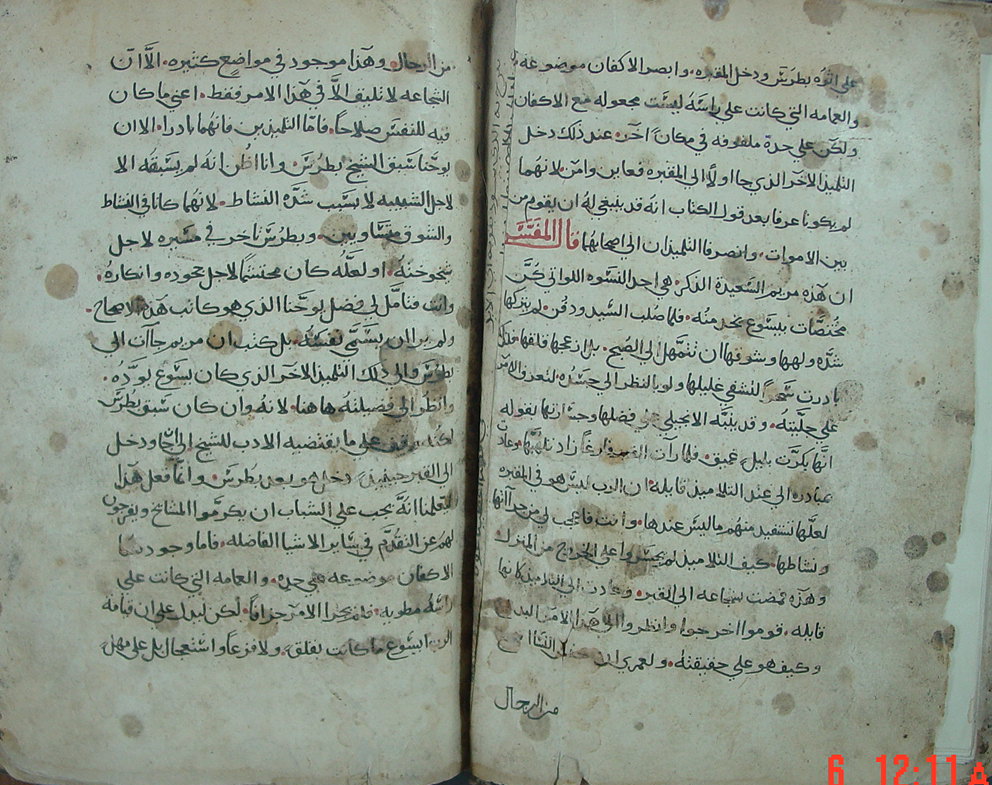 على اثره بطرس ودخل المقبره. وابصر الاكفان موضوعه
والعامه التي كانت على راسه ليست مجعوله مع الاكفان
ولكن على جدة ملفوفه في مكان اخر. عند ذلك دخل
التلميذ الاخر الذي جا اولا الى المقبره فعاين وامن. لانهما
لم يكونا عرفا بعد قول الكتاب انه قد ينبغي له ان يقوم من
بين الاموات. وانصرفا التلميذان الى اصحابهما قال المفسر
ان هذه مريم السعيدة الذكر. هي احد النسوه اللواتي كن
مختصات بيسوع بخدمته. فلما صلب السيد ودفن. لم يتركها
شده ولهها وشوقها ان تتمهل الى الصبح. بل ازعجها فاقلقها
بادرت سحرا لتشفي غليلها ولو بالنظر الى جسده. لتعرف الامر
على جليته. وقد ينبه الانجيلي على فضلها وحسارتها بقوله
انها بكرت بليل عميق. فلما رات القبر فارغا زاد تلهبها. وعادت
مبادره الى عند التلاميذ قايله. ان الرب ليس هو في المقبره
لعلها تستفيد منهم ما ليس عندها. وانت فاعجب لي من جراتها
ونشاطها. كيف التلاميذ لم يجسروا على الخروج من المنزل
وهذه مضت سباعه الى القبر. وعادت الى التلاميذ كانها
قايله. قوموا اخرجوا وانظروا الى هذا الامر البديع
وكيف هو على حقيقته. ولعمري ان النسا اشجع
من الرجال
من الرجال. وهذا موجود في مواضع كثيره. الا ان
الشجاعه لا تليق الا في هذا الامر فقط. اعني ما كان
فيه للنفس صلاحا. فاما التلميذين فانهما بادرا. الا ان
يوحنا سبق الشيخ بطرس. وانا اظن انه لم يسبقه الا
لاجل الشبيبه لا بسبب شدة النشاط. لانهما كانا في النشاط
والشوق متساويين. وبطرس تاخر في مسيره لاجل
شيخوخته. او لعله كان محتشما لاجل جحوده وانكاره.
وانت فتامل لي فضل يوحنا الذي هو كاتب هذا الاصحاح.
ولم ير ان يسمي نفسه. بل كتب ان مريم جاات الى
بطرس والى ذلك التلميذ الاخر الذي كان يسوع يوده.
وانظر الى فضيلته هاهنا. لانه وان كان سبق بطرس
لكنه وقف على ما يقتضيه الادب للشيخ الى ودخل
الى القبر حينيذ دخل هو بعد بطرس. وانما فعل هذا
ليعلمنا انه يجب على الشباب ان يكرموا المشايخ ويفرجون
لهم عن التقدم في ساير الاشيا الفاضله. فاما وجود
الاكفان موضوعه على جده. والعامه التي كانت على
راسه مطويه. فلم يجر الامر جزافا. لكن ليدل على ان قيامة
الرب يسوع ما كانت بقلق. ولا فزعا واستعجال بل على مهل